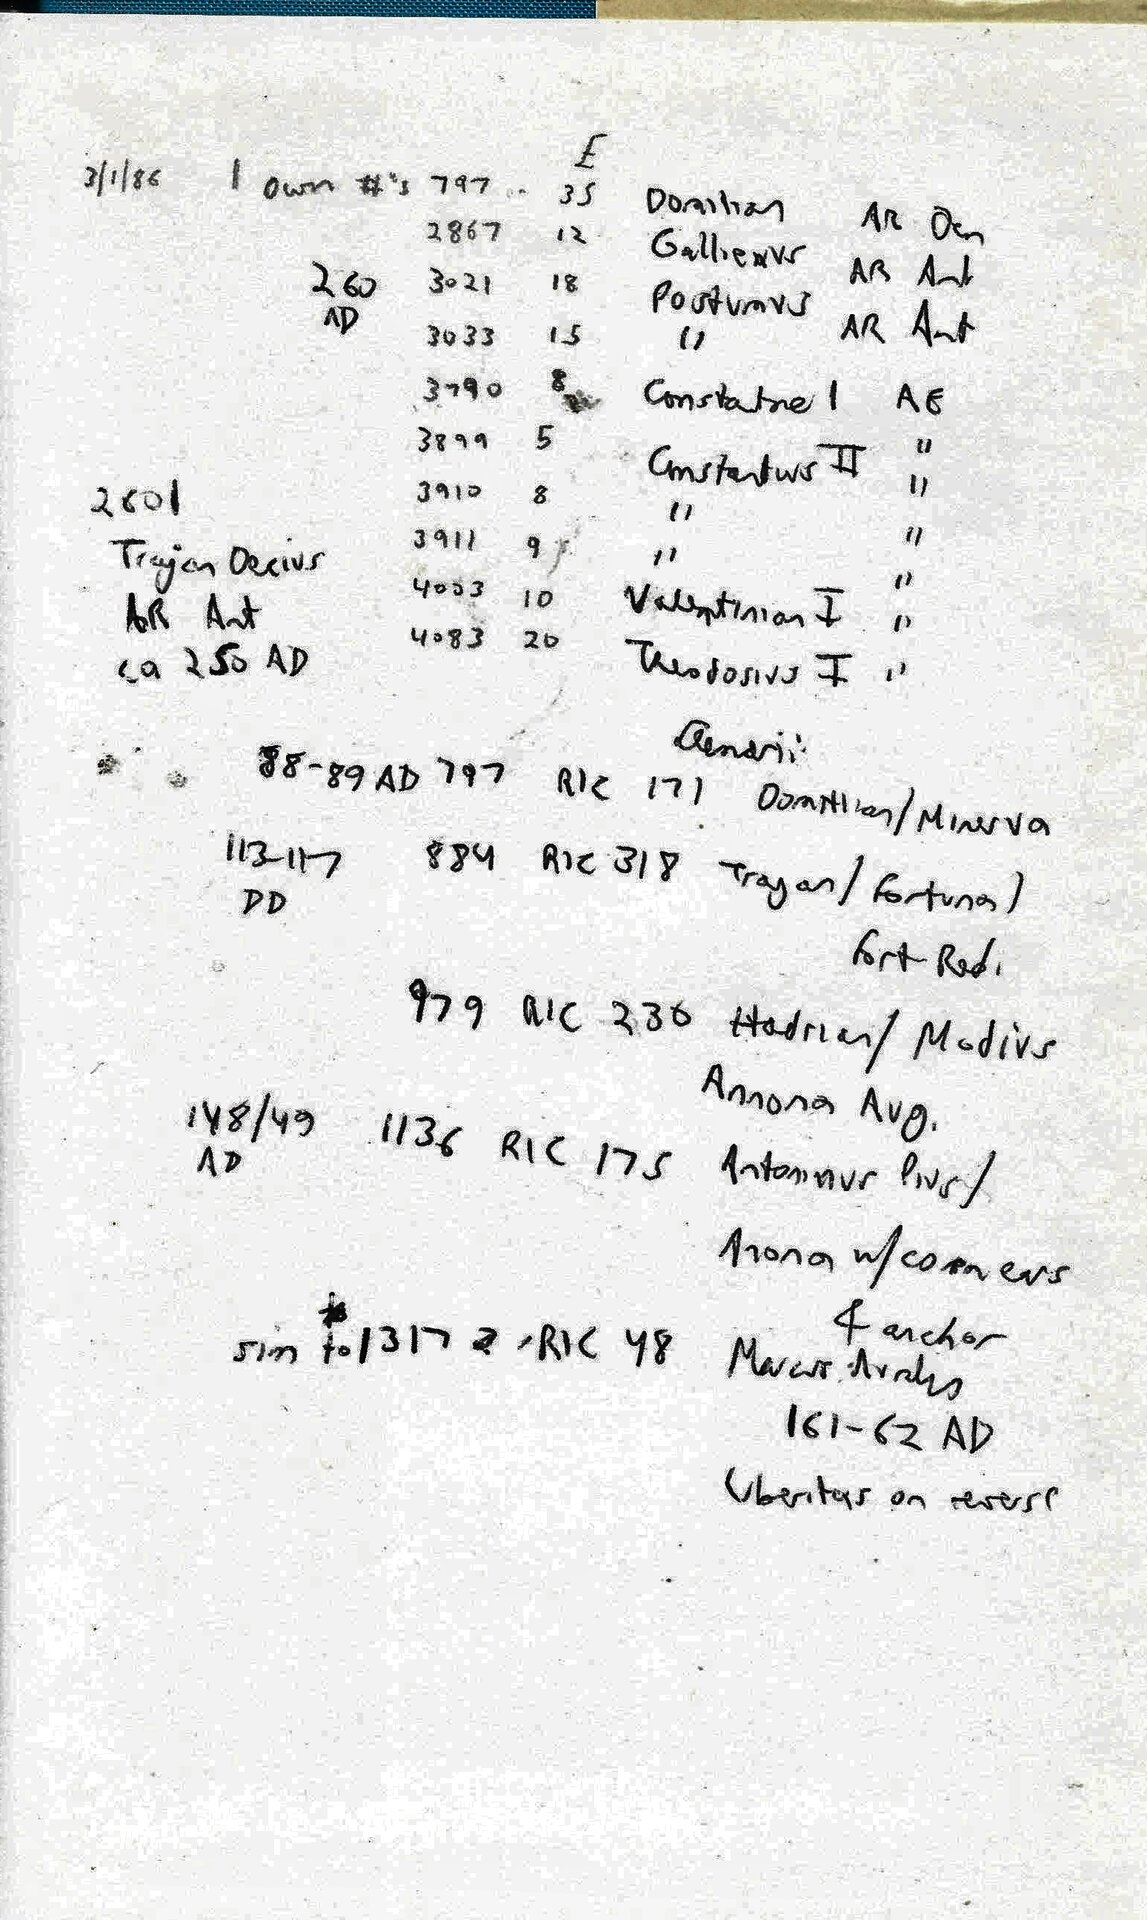 £
3/1/86 I own #'s 797 .. 35 Domitian AR Den
2867 12 Gallienus AR Ant
260 AD 3021 18 Postumus AR Ant
3033 15 "
3790 8 Constatne I AE
3899 5 "
Constantius II "
3910 8 "
3911 9 " "
4003 10 Valentinian I "
4083 20 Theodosius I "
2601
Trajan Decius
AR Ant
ca 250 AD
Denarii
88-89 AD 797 RIC 171 Domitian/Minerva
113-117 884 RIC 318 Trajan/Fortuna/
DD
Fort Red.
979 RIC 230 Hadrian/ Modius
Annona Aug.
148/49 AD 1136 RIC 175 Antoninus Pius/
Anona w/corn ears
& anchor
sim to 1317 RIC 48 Marcus Aurelius
161-62 AD
Uberitas on reverse